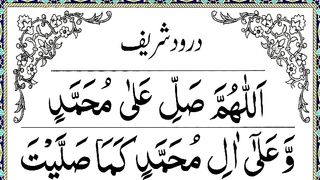 درود شریف
اَللّٰهُمَّ صَلِّ عَلٰی مُحَمَّدٍ
وَّ عَلٰٓی اٰلِ مُحَمَّدٍ کَمَا صَلَّیْتَ